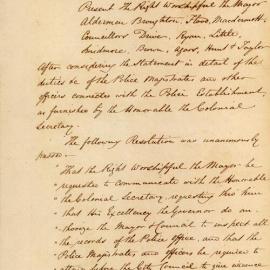 Present The Right Worshipful the Mayor
Aldermen Broughton, Flood, Macdermott,
Councillors Driver, Ryan, Little,
Smidmore, Brown, Agars, Hunt & Taylor
After considering the Statement in detail of the
duties &c of the Police Magistrates and other
officers connected with the Police Establishment,
as furnished by the Honorable the Colonial
Secretary.
The following Resolution was unanimously
passed:-
"That the Right Worshipful the Mayor be
"requested to communicate with the Honorable
"the Colonial Secretary, requesting him
"that His Excellency the Governor do au-
"thorize the Mayor & Council to inspect all
"the records of the Police Office, and that the
"Police Magistrates and officers be required to
"attend before the City Council to give evidence